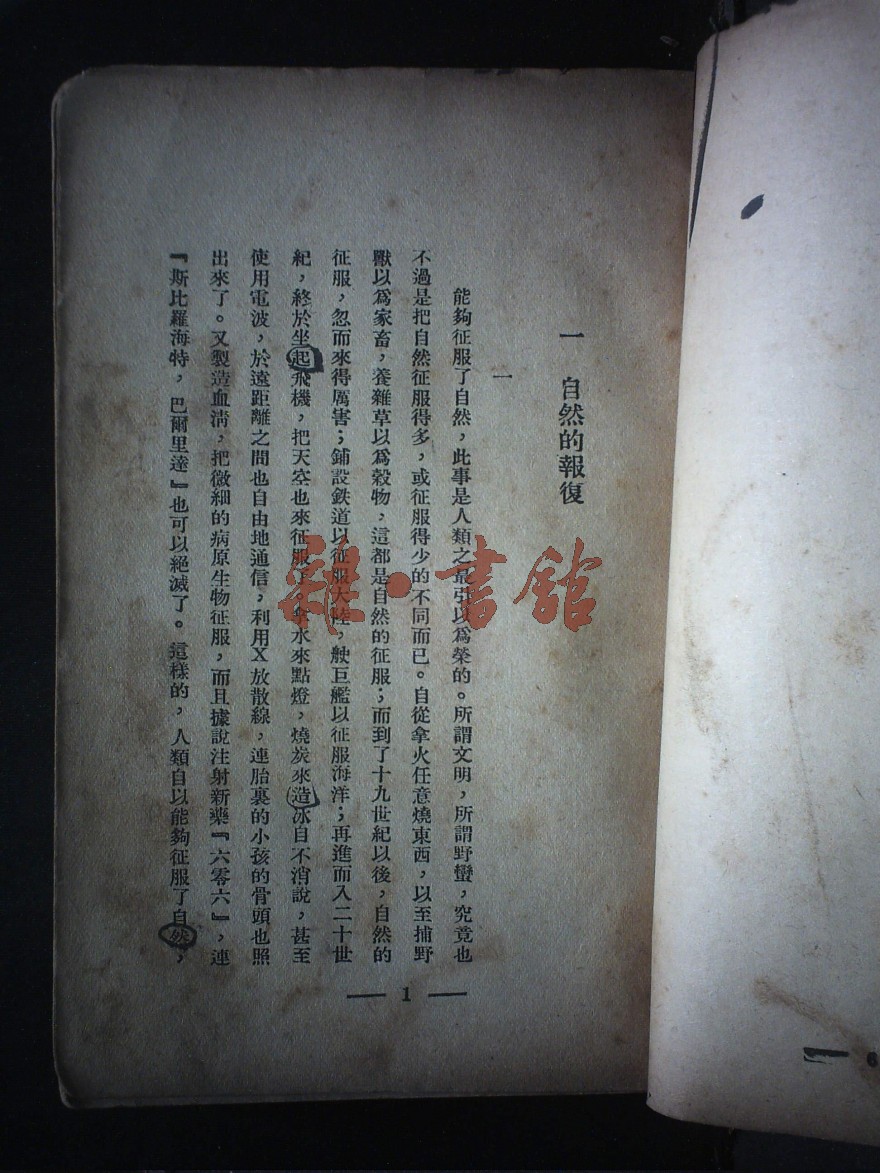 一　自然的報復
一
能夠征服了自然，此事是人類之最引以爲榮的。所謂文明，所謂野蠻，究竟也
不過是把自然征服得多，或征服得少的不同而已。自從拿火任意燒東西，以至捕野
獸以爲家畜，養雜草以爲穀物，這都是自然的征服；而到了十九世紀以後，自然的
征服，忽而來得厲害；鋪設鉄道以征服大陸，駛巨艦以征服海洋；再進而入二十世
紀，終於坐起飛機，把天空也來征服了。水來點燈，燒炭來造冰自不消說，甚至
使用電波，於遠距離之間也自由地通信，利用X放散線，連胎裏的小孩的骨頭也照
出來了。又製造血淸，把微細的病原生物征服，而且據說注射新藥『六零六』，連
『斯比羅海特，巴爾里達』也可以絕滅了。這樣的，人類自以能夠征服了自然，
— 1 —
雜·書館
6